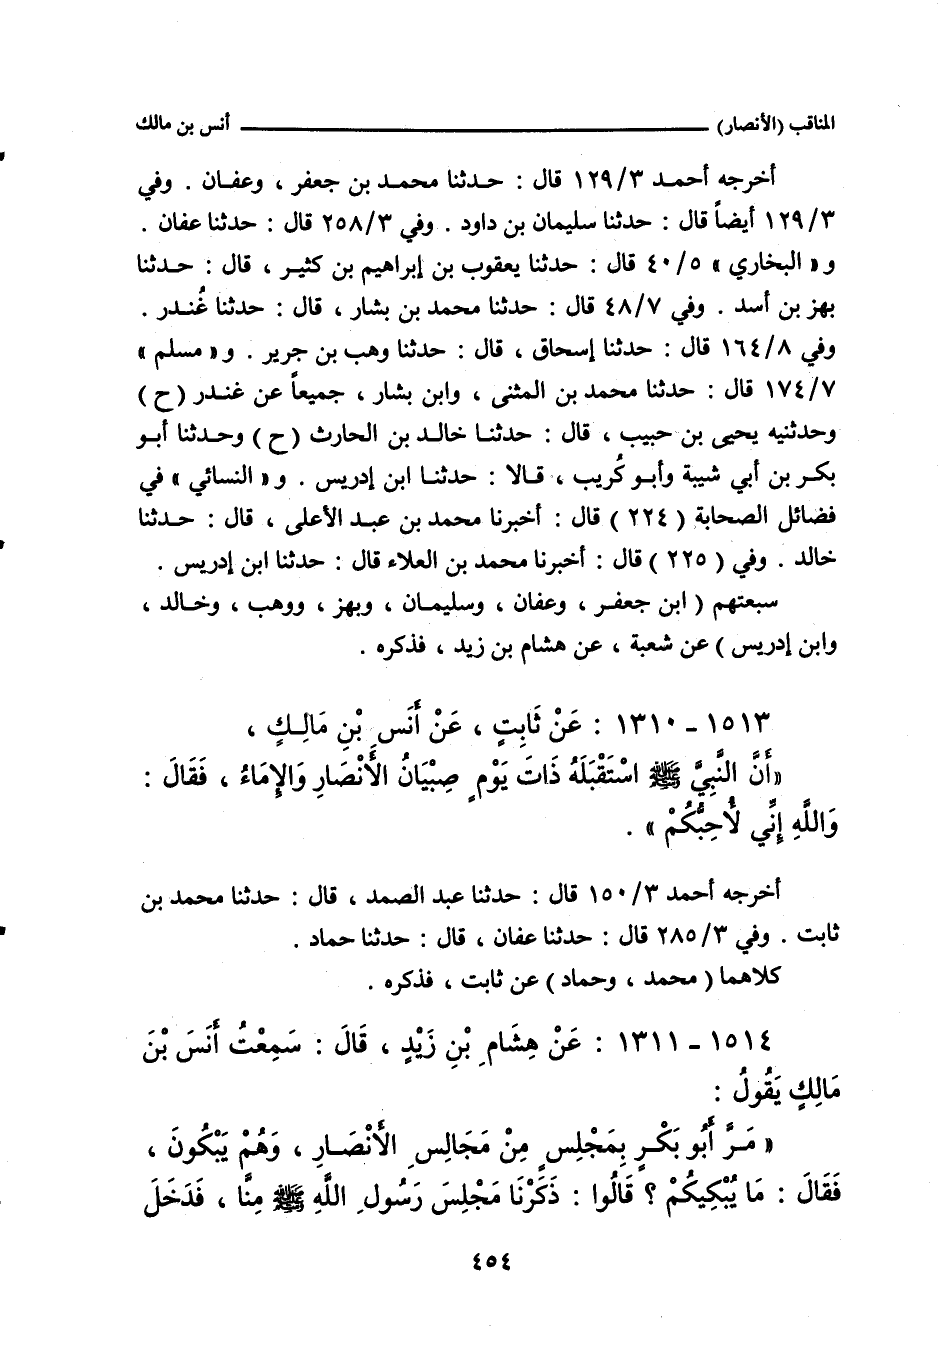 المناقب (الأنصار) ــــــــــــــــــــ أنس بن مالك
أخرجه أحمـد ١٢٩/٣ قال : حـدثنا محمـد بن جعفر ، وعفـان . وفي
١٢٩/٣ أيضاً قال : حدثنا سليمان بن داود . وفي ٢٥٨/٣ قال : حدثنا عفان .
و« البخاري » ٤٠/٥ قال : حدثنا يعقوب بن إبراهيم بن كثيـر ، قال : حـدثنا
بهز بن أسد . وفي ٤٨/٧ قال : حدثنا محمد بن بشار ، قال : حدثنا غُنـدر .
وفي ١٦٤/٨ قال : حدثنا إسحاق ، قال : حدثنا وهب بن جرير . و« مسلم »
١٧٤/٧ قال : حدثنا محمد بن المثنى ، وابن بشار ، جميعاً عن غنـدر (ح)
وحدثنيه يحيى بن حبيب ، قال : حدثنـا خالـد بن الحارث (ح) وحـدثنا أبـو
بكـر بن أبي شيبة وأبـو كُريب ، قـالا : حدثنـا ابن إدريس . و« النسائي » في
فضائل الصحابة ( ٢٢٤ ) قال : أخبرنا محمد بن عبـد الأعلى ، قال : حـدثنا
خالد . وفي ( ٢٢٥ ) قال : أخبرنا محمد بن العلاء قال : حدثنا ابن إدريس .
سبعتهم ( ابن جعفـر ، وعفان ، وسليمـان ، وبهز ، ووهب ، وخـالد ،
وابن إدريس ) عن شعبة ، عن هشام بن زيد ، فذكره .
١٥١٣ ـ ١٣١٠ : عَنْ ثَابِتٍ ، عَنْ أَنَسِ بْنِ مَالِـكٍ ،
«أَنَّ النَّبِيَّ ﷺ اسْتَقْبَلَهُ ذَاتَ يَوْمٍ صِبْيَانُ الأَنْصَارِ وَالإِمَاءُ ، فَقَالَ :
وَاللَّهِ إِنِّي لأُحِبُّكُمْ » .
أخرجه أحمد ١٥٠/٣ قال : حدثنا عبد الصمد ، قال : حدثنا محمد بن
ثابت . وفي ٢٨٥/٣ قال : حدثنا عفان ، قال : حدثنا حماد .
كلاهما ( محمد ، وحماد ) عن ثابت ، فذكره .
١٥١٤ ـ ١٣١١ : عَنْ هِشَامِ بْنِ زَيْدٍ ، قَالَ : سَمِعْتُ أَنَسَ بْنَ
مَالِكٍ يَقُولُ :
« مَـرَّ أَبُو بَكْرٍ بِمَجْلِسٍ مِنْ مَجَالِسِ الأَنْصَـارِ ، وَهُمْ يَبْكُونَ ،
فَقَالَ : مَا يُبْكِيكُمْ ؟ قَالُوا : ذَكَرْنَا مَجْلِسَ رَسُولِ اللَّهِ ﷺ مِنَّا ، فَدَخَلَ
٤٥٤